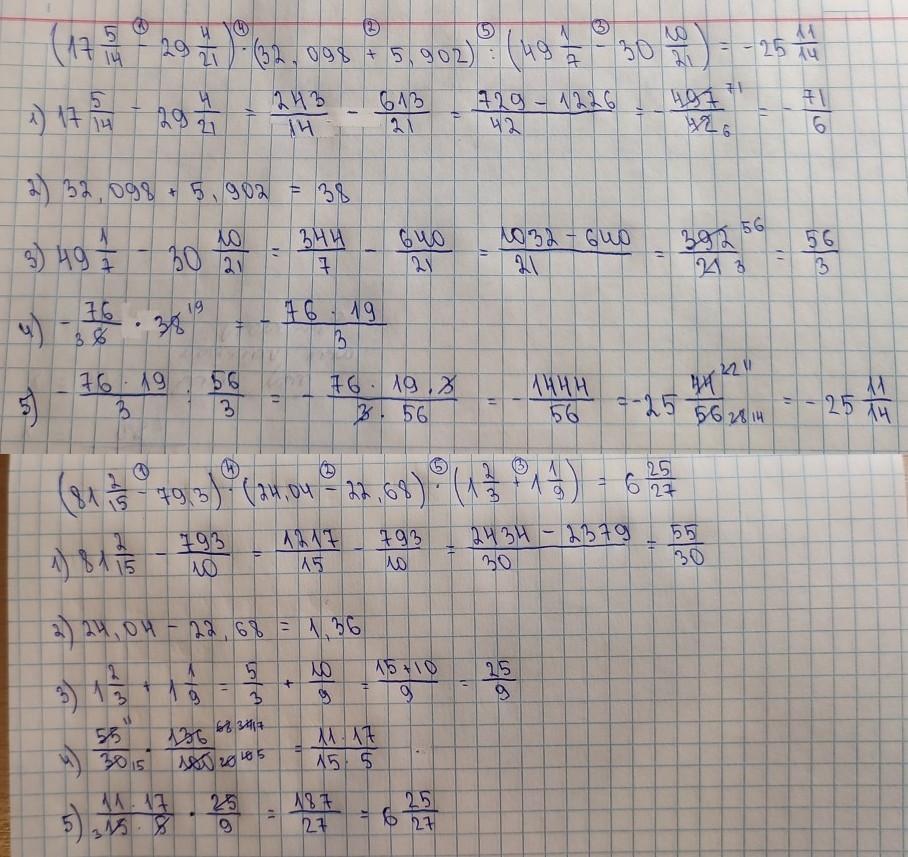 (17 5/14 ① - 29 4/21) ④ · (32,098 ② + 5,902) ⑤ : (49 1/7 ③ - 30 10/21) = -25 11/14
1) 17 5/14 - 29 4/21 = 243/14 - 613/21 = (729 - 1226)/42 = - 497 71/42 6 = - 71/6
2) 32,098 + 5,902 = 38
3) 49 1/7 - 30 10/21 = 344/7 - 640/21 = (1032 - 640)/21 = 392 56/21 3 = 56/3
4) - 76/3 6 · 38 19 = - (76 · 19)/3
5) - (76 · 19)/3 : 56/3 = - (76 · 19 · 3)/(3 · 56) = - 1444/56 = -25 44 22 11/56 28 14 = - 25 11/14
(81 2/15 ① - 79,3) ④ · (24,04 ② - 22,68) ⑤ · (1 2/3 ③ + 1 1/9) = 6 25/27
1) 81 2/15 - 793/10 = 1217/15 - 793/10 = (2434 - 2379)/30 = 55/30
2) 24,04 - 22,68 = 1,36
3) 1 2/3 + 1 1/9 = 5/3 + 10/9 = (15+10)/9 = 25/9
4) 55 11/30 15 · 136 68 34 17/100 20 10 5 = (11 · 17)/(15 · 5)
5) (11 · 17)/(3 15 · 5) · 25/9 = 187/27 = 6 25/27